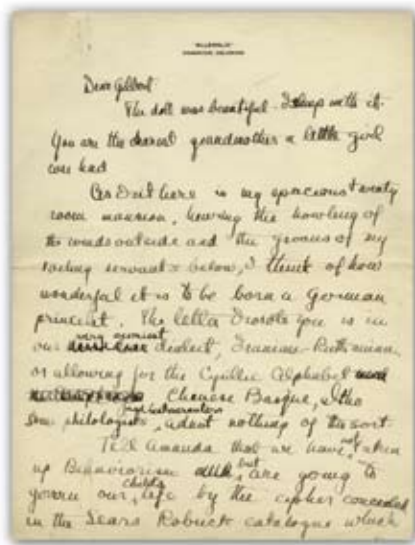 "ELLERSLIE"
EDGEMOOR, DELAWARE
Dear Gilbert:
The doll was beautiful - I sleep with it.
You are the dearest grandmother a little girl
ever had
As I sit here in my spacious twenty
room mansion, hearing the howling of
the winds outside and the groans of my
servants below, I think of how
wonderful it is to be born a German
princess. The letter I wrote you is in
our very ancient dialect, Ruthenian
or allowing for the Cyrillic Alphabet
Chinese Basque, tho
some philologists admit nothing of the sort
Tell Amanda that we have not taken
up Behaviorism but are going to
govern our child's life by the cipher concealed
in the Sears Robuck catalogue which